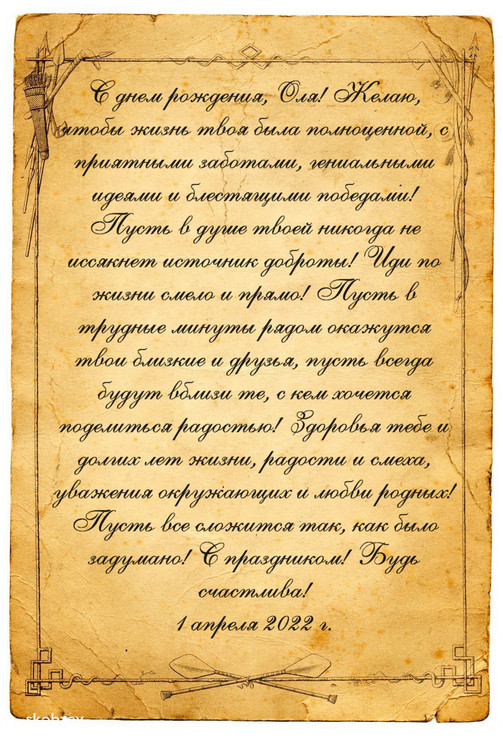 С днем рождения, Оля! Желаю,
чтобы жизнь твоя была полноценной, с
приятными заботами, гениальными
идеями и блестящими победами!
Пусть в душе твоей никогда не
иссякнет источник доброты! Иди по
жизни смело и прямо! Пусть в
трудные минуты рядом окажутся
твои близкие и друзья, пусть всегда
будут вблизи те, с кем хочется
поделиться радостью! Здоровья тебе и
долгих лет жизни, радости и смеха,
уважения окружающих и любви родных!
Пусть все сложится так, как было
задумано! С праздником! Будь
счастлива!
1 апреля 2022 г.